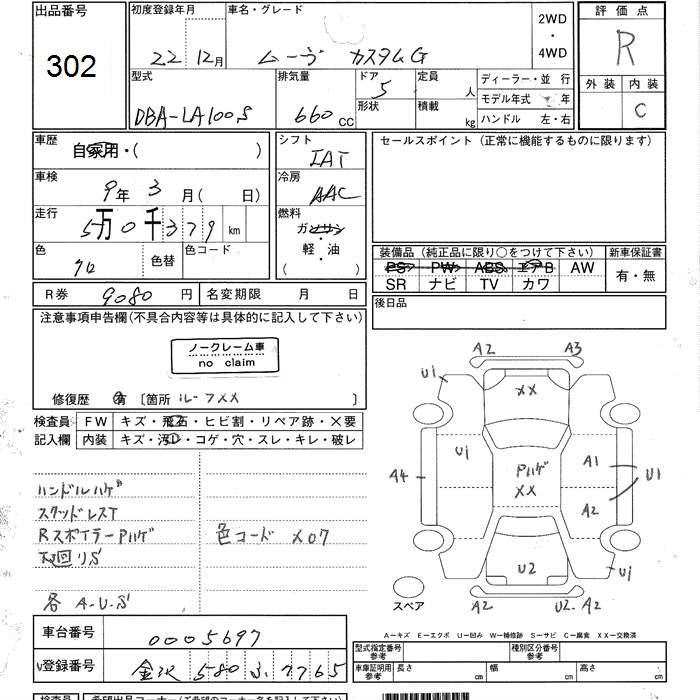 出品番号
302
初度登録年月
22 12月
車名・グレード
ムーヴ カスタムG
2WD
・
4WD
評価点
R
外装 内装
C
型式
DBA-LA100S
排気量
660 CC
ドア
5
形状
定員
人
積載
kg
ディーラー・並 行
モデル年式 年
ハンドル 左・右
車歴
自家用・( )
車検
9年 3月( 日)
走行
5万0千379 km
色
クロ
色替
色コード
シフト
IAT
冷房
AAC
燃料
ガソリン
・
軽・油
( )
セールスポイント (正常に機能するものに限ります)
装備品 (純正品に限り○をつけて下さい)
PS PW ABS エアB AW
SR ナビ TV カワ
新車保証書
有・無
R券 9080円
名変期限 月 日
後日品
注意事項申告欄(不具合内容等は具体的に記入して下さい)
ノークレーム車
no claim
修復歴 有 〔箇所 ルーフXX 〕
検査員 FW キズ・飛石・ヒビ割・リペア跡・×要
記入欄 内装 キズ・汚レ・コゲ・穴・スレ・キレ・破レ
ハンドルハゲ
スタッドレスT
RスポイラーPハゲ
下廻リS
各 A・U・S
色コード X07
A2 A3
U1
XX
U1
Pハゲ
XX
A1
A2
U1
A4
U2
U1
A2
U2 A2
スペア
車台番号
0005697
V登録番号
金沢 580 ふ 7765
A−キズ E−エクボ U−凹み W−補修跡 S−サビ C−腐食 XX−交換済
型式指定番号
参考
種別区分番号
参考
車庫証明用
参考
長さ cm
幅 cm
高さ cm